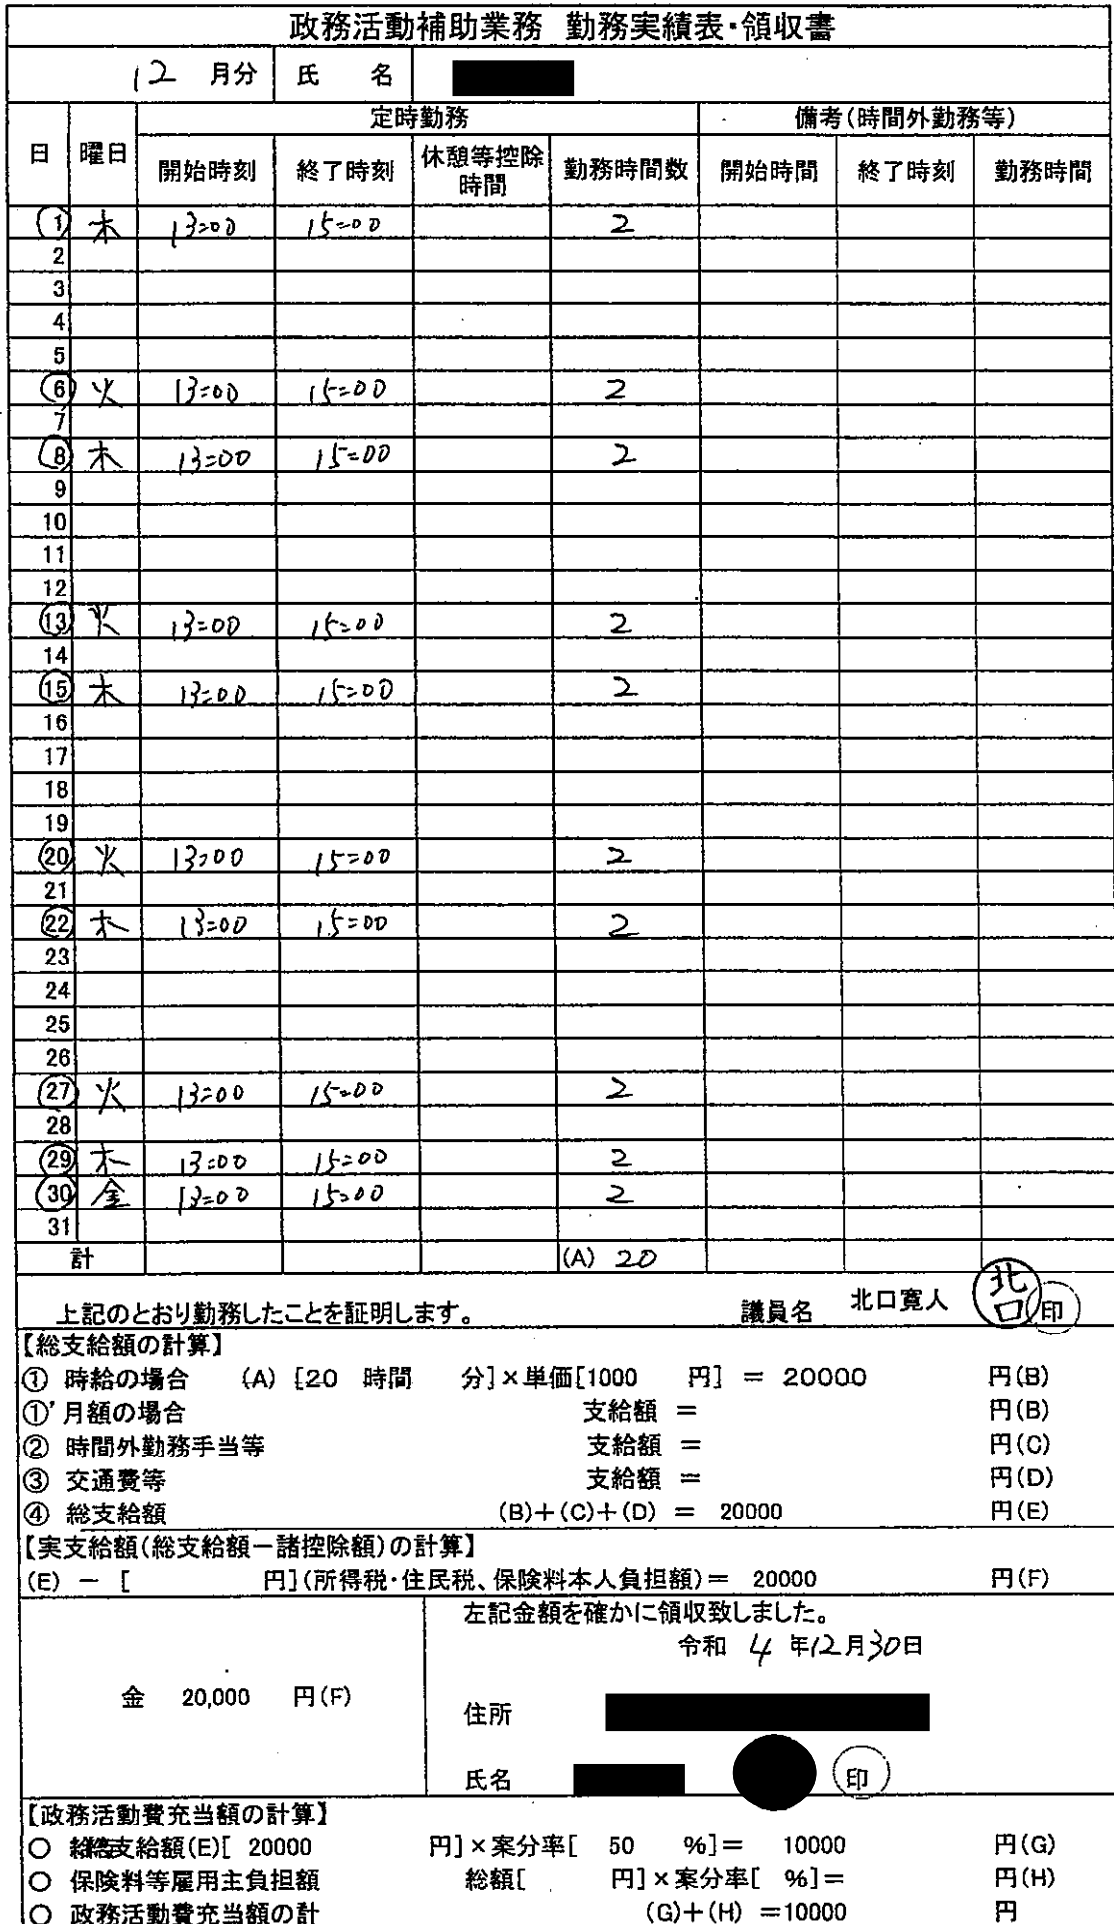 政務活動補助業務 勤務実績表・領収書
12 月分 氏 名
定時勤務 備考(時間外勤務等)
日 曜日 開始時刻 終了時刻 休憩等控除時間 勤務時間数 開始時間 終了時刻 勤務時間
1 木 13:00 15:00 2
2
3
4
5
6 火 13:00 15:00 2
7
8 木 13:00 15:00 2
9
10
11
12
13 火 13:00 15:00 2
14
15 木 13:00 15:00 2
16
17
18
19
20 火 13:00 15:00 2
21
22 木 13:00 15:00 2
23
24
25
26
27 火 13:00 15:00 2
28
29 木 13:00 15:00 2
30 金 13:00 15:00 2
31
計 (A) 20
上記のとおり勤務したことを証明します。 議員名 北口寛人 北口 印
【総支給額の計算】
① 時給の場合 (A) [20 時間 分]×単価[1000 円] = 20000 円(B)
①' 月額の場合 支給額 = 円(B)
② 時間外勤務手当等 支給額 = 円(C)
③ 交通費等 支給額 = 円(D)
④ 総支給額 (B)+(C)+(D) = 20000 円(E)
【実支給額(総支給額-諸控除額)の計算】
(E) - [ 円](所得税・住民税、保険料本人負担額)= 20000 円(F)
左記金額を確かに領収致しました。
令和 4 年12月30日
金 20,000 円(F)
住所
氏名 印
【政務活動費充当額の計算】
○ 支給額(E)[ 20000 円]×案分率[ 50 %]= 10000 円(G)
○ 保険料等雇用主負担額 総額[ 円]×案分率[ %]= 円(H)
○ 政務活動費充当額の計 (G)+(H) =10000 円